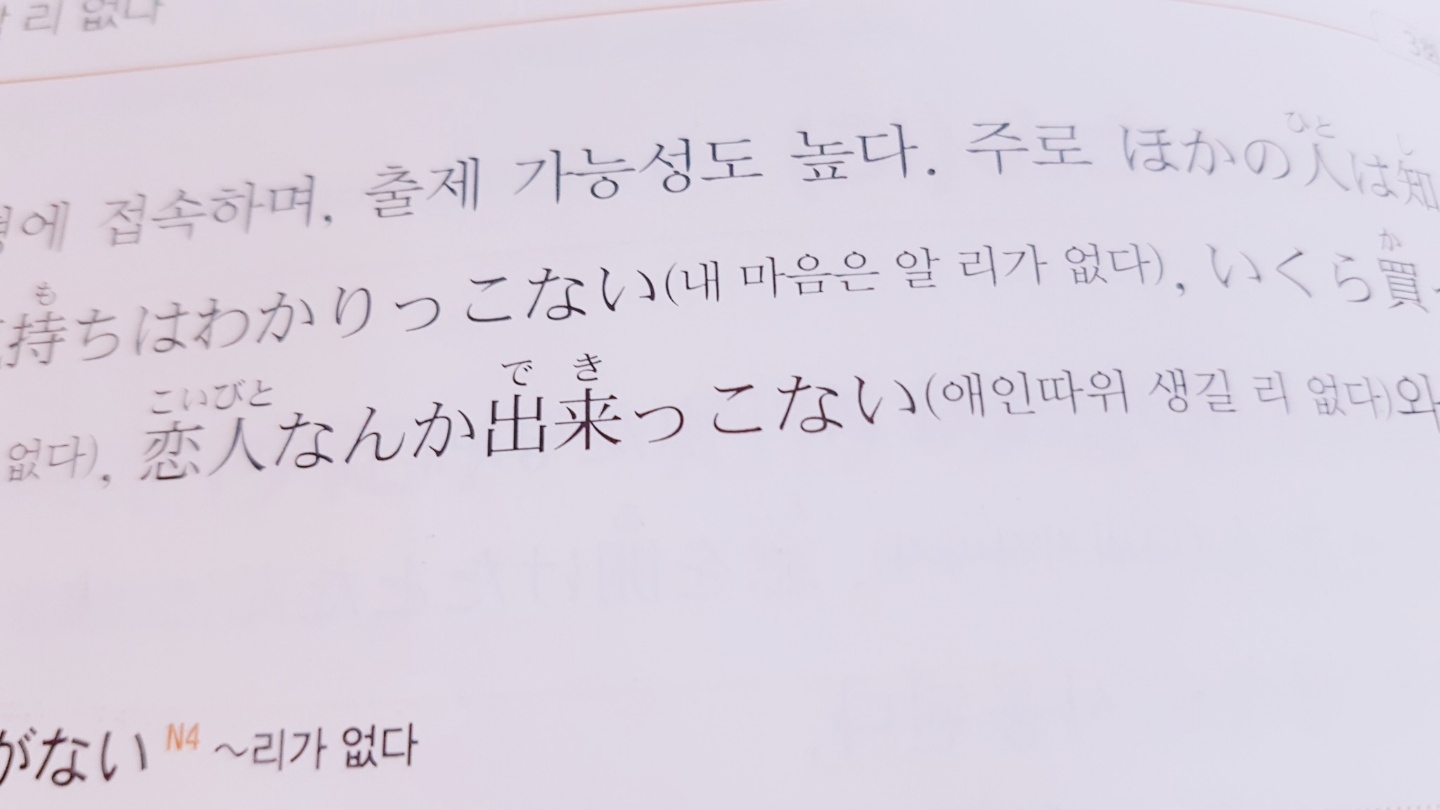 리 없다
에 접속하며, 출제 가능성도 높다. 주로 ほかの人は知
ひと し
持ちはわかりっこない(내 마음은 알 리가 없다), いくら買
も か
없다), 恋人なんか出来っこない(애인따위 생길 리 없다)와
こいびと で き
がない N4 ～리가 없다